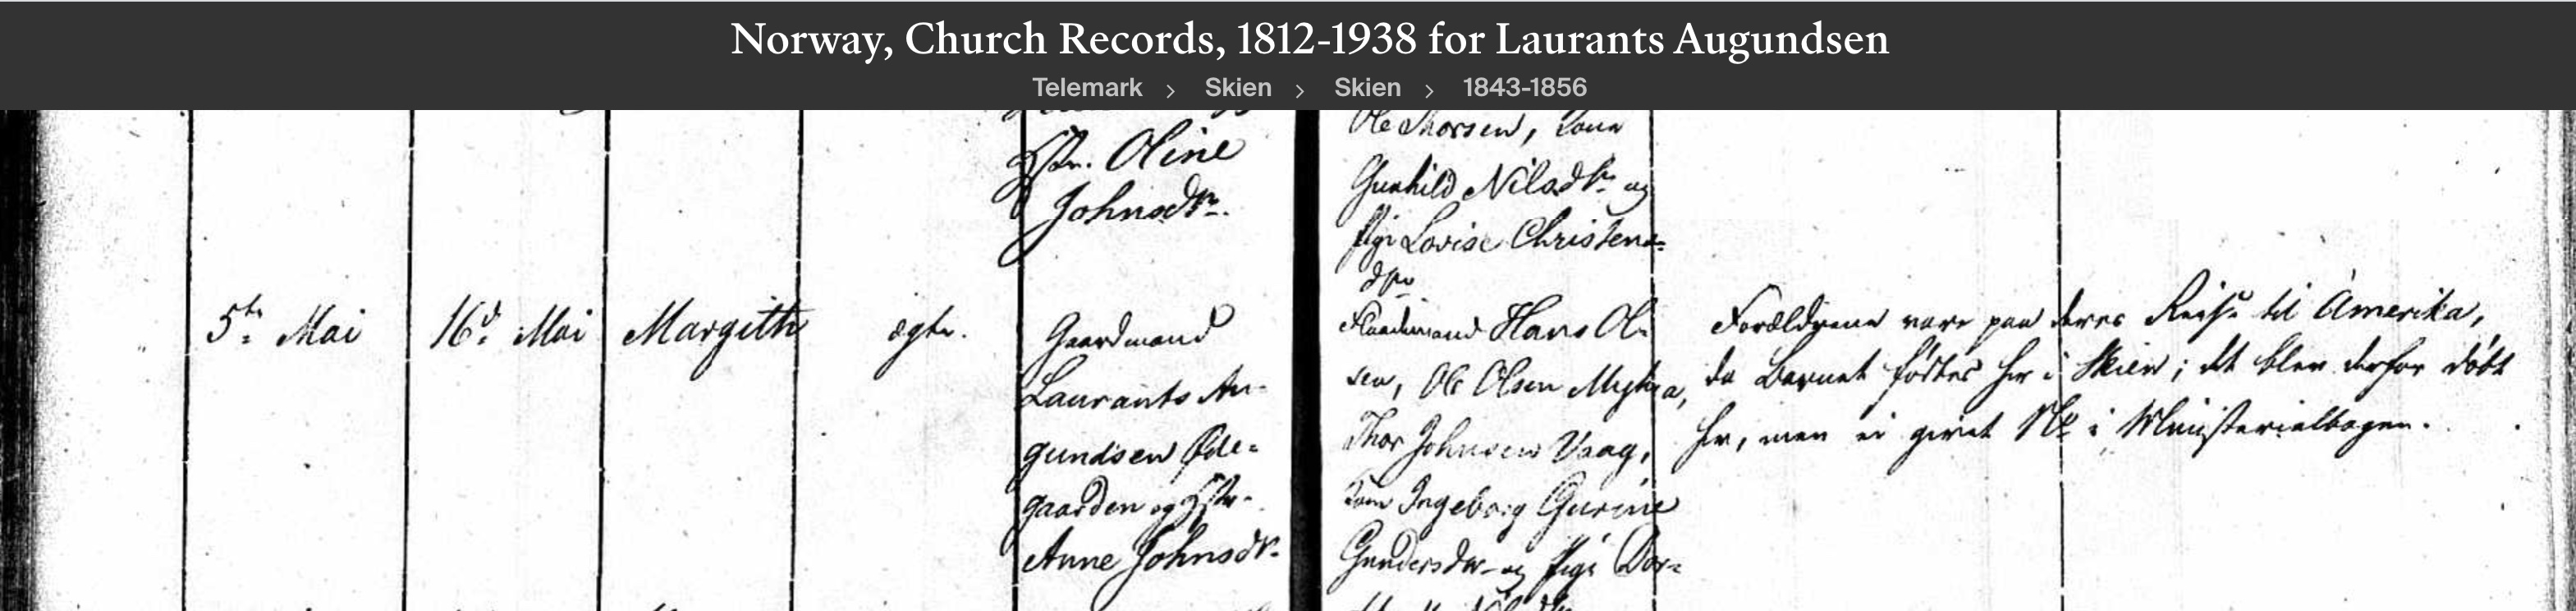 Norway, Church Records, 1812-1938 for Laurants Augundsen
Telemark > Skien > Skien > 1843-1856
Hstr. Oline
Johnsdtr.
Ole Thorsen, Kone
Gunhild Nilsdtr og
Pige Lovise Christens-
dtr
5te Mai
16d Mai
Margith
ægte.
Gaardmand
Laurants Au-
gundsen Øde-
gaarden og Hstr.
Anne Johnsdr.
Hans Ol-
sen, Ole Olsen
Thor Johnsen Vaag,
Kone Ingeborg Gurine
Gundersdtr og Pige Dor-
Forældrene vare paa deres Reise til Amerika,
da Barnet fødtes her i Skien; det blev derfor døbt
her, men ei givet No i Ministerialbogen.